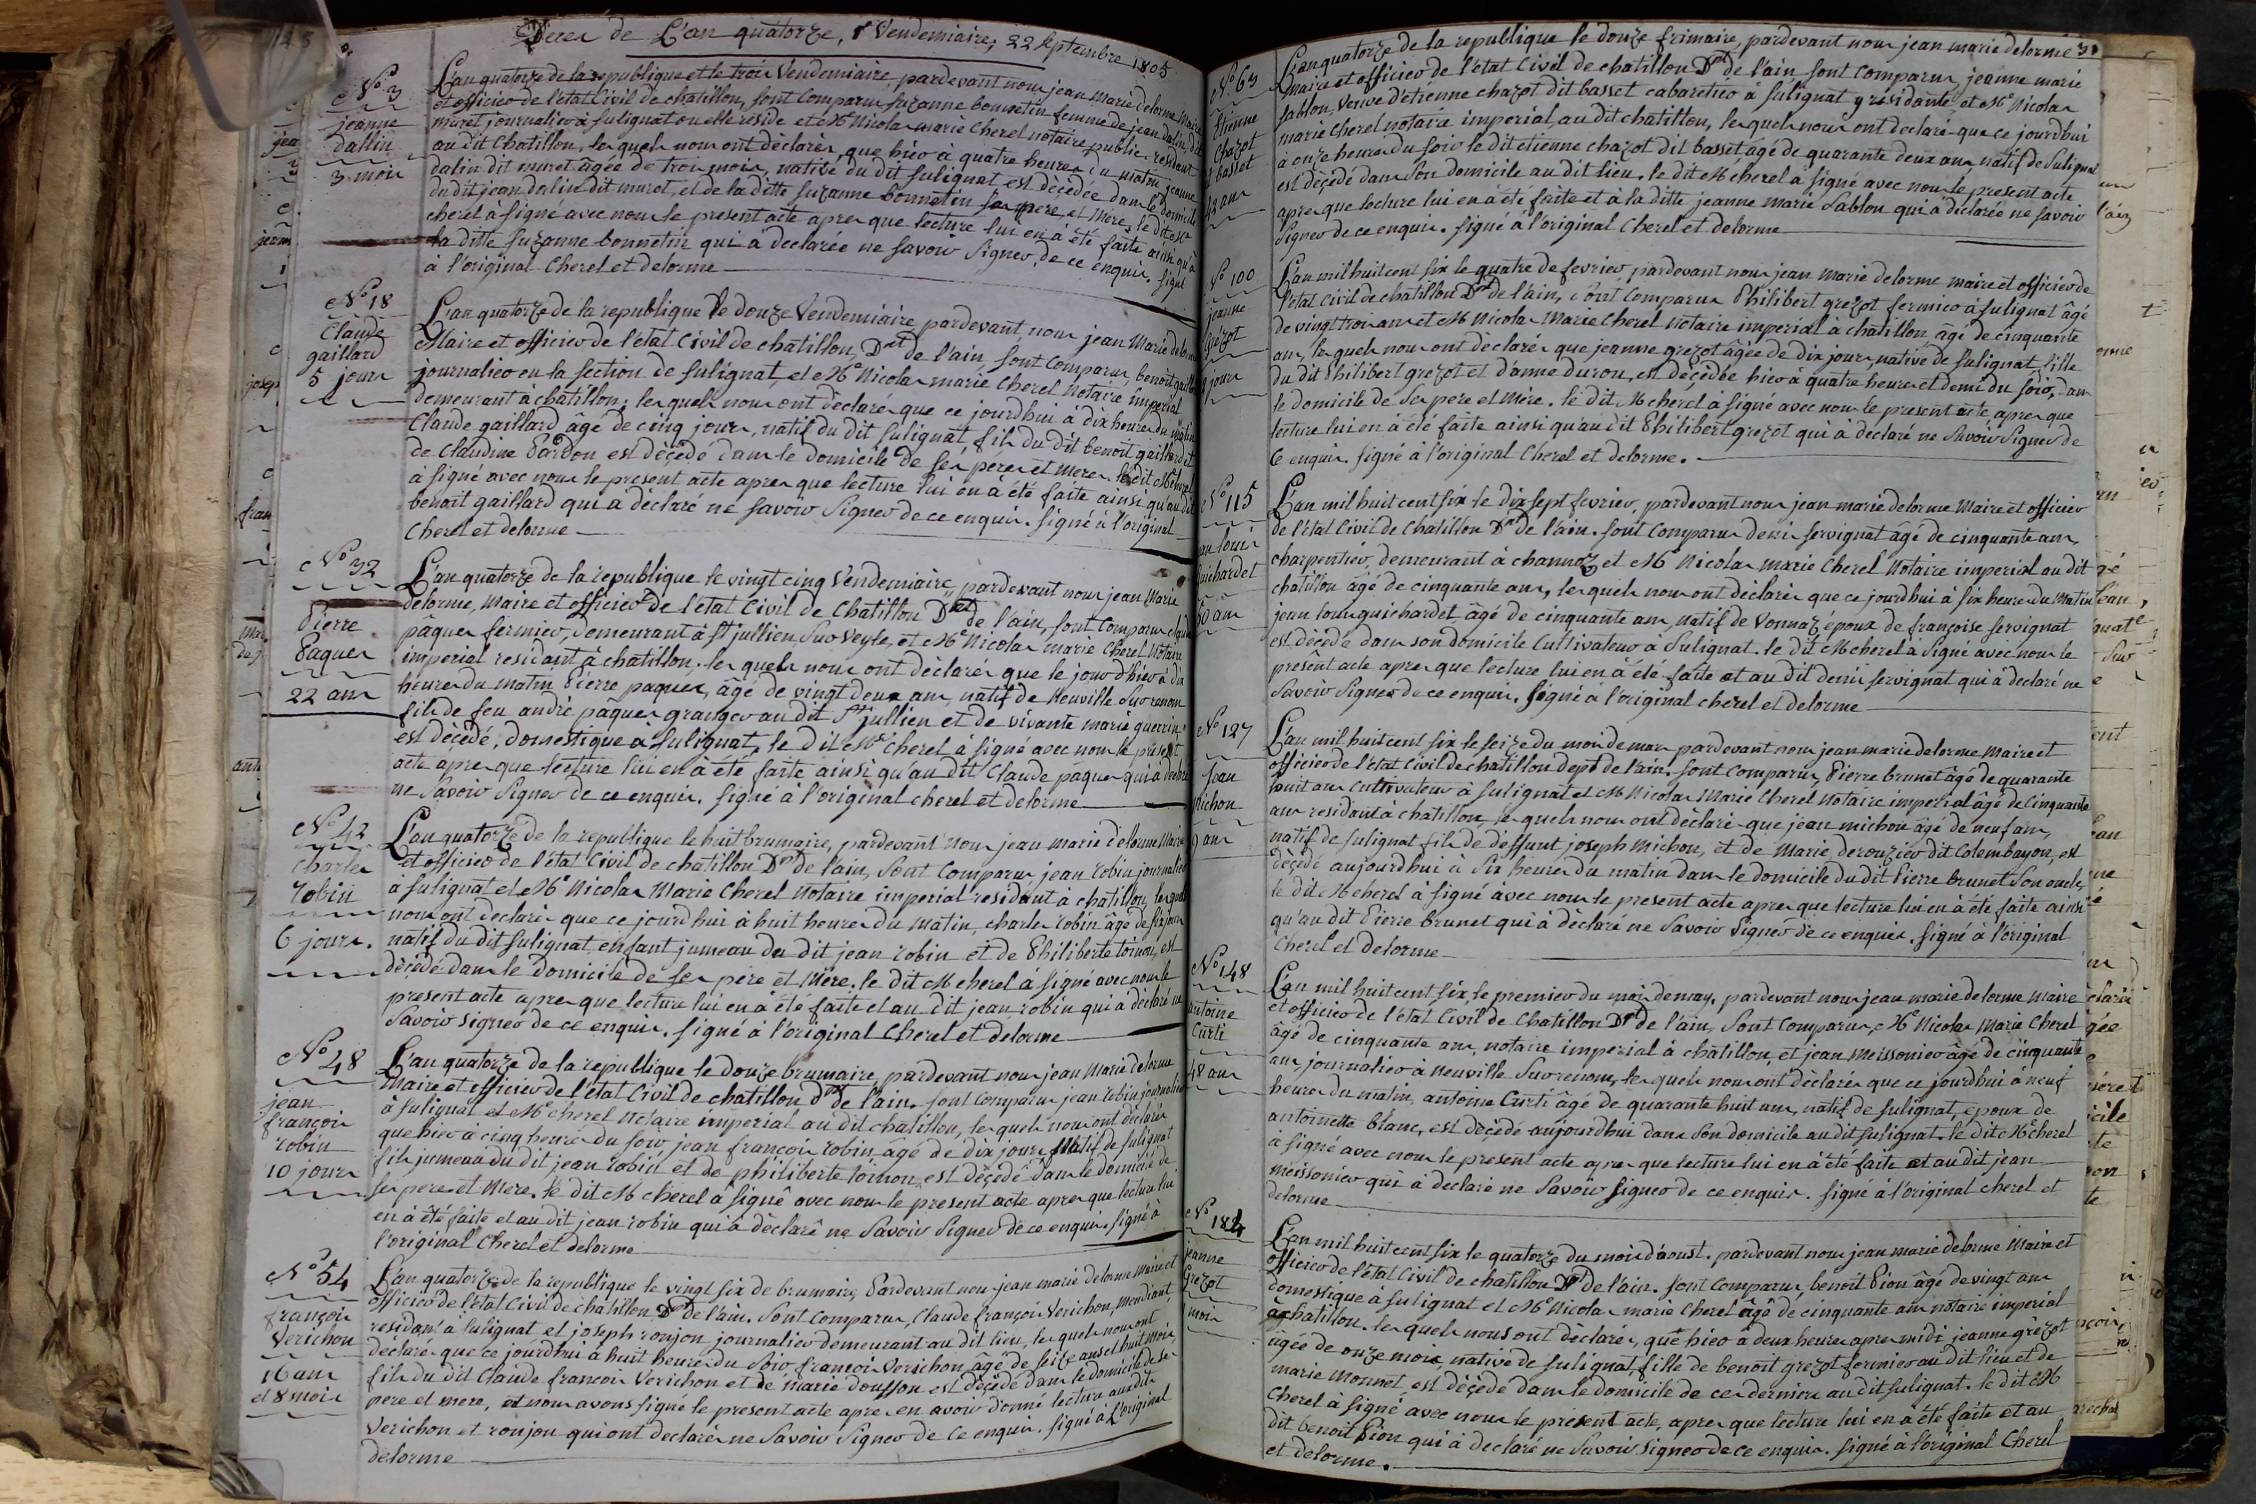 Décés de L'an quatorze, 1er Vendemiaire, 22 Septembre 1805
N° 3
jeanne
dallin
3 mois
L'an quatorze de la republique et le trois Vendemiaire, pardevant nous jean Marie delorme Maire
et officier de l'état Civil de chatillon, sont Comparus suzanne bonnetin femme de jean dalin, dit
muret journalier à sulignat ou elle reside et Me Nicolas marie Cherel notaire public residant
au dit Chatillon, les quels nous ont déclarés que hier à quatre heures du matin jeanne
dalin dit muret âgée de trois mois, native du dit sulignat est décédée dans le domicile
du dit jean dalin dit muret, et de la ditte suzanne bonnetin ses pere et Mere, le dit Me
cherel à signé avec nous le present acte apres que lecture lui en à été faite ainsi qu'à
la ditte suzanne bonnetin qui à declarée ne savoir signer, de ce enquis. signé
à l'original Cherel et delorme
N° 18
Claude
gaillard
5 jours
L'an quatorze de la republique le douze Vendemiaire pardevant nous jean Marie delorme
Maire et officier de l'état Civil de chatillon, Dnt de l'ain, sont Comparus, benoit gaillard
journalier en la section de sulignat, et Me Nicolas marie Cherel Notaire imperial
demeurant à chatillon; les quels nous ont déclarés que ce jourdhui à dix heures du matin
Claude gaillard âgé de cinq jours, natif du dit sulignat, fils du dit benoit gaillard et
de Claudine Pardon est décédé dans le domicile de ses péres et mere. le dit Me cherel
à signé avec nous le present acte apres que lecture lui en à été faite ainsi qu'au dit
benoit gaillard qui à déclaré ne savoir signer de ce enquis. signé à l'original
Cherel et delorme
N° 32
Pierre
Paques
22 ans
L'an quatorze de la republique le vingt cinq Vendemiaire, pardevant nous jean Marie
delorme, Maire et officier de l'état Civil de Chatillon Dnt de l'ain, sont Comparus Claude
pâques fermier, demeurant à st jullien sur Veyle, et Me Nicolas marie Cherel Notaire
imperial residant à chatillon. les quels nous ont déclarés que le jour d'hier à dix
heures du matin Pierre paques, âgé de vingt deux ans, natif de Neuville sur renom
fils de feu andré pâques granger au dit St jullien et de vivante marie guerrin
est décédé, domestique à sulignat, le dit Me cherel à signé avec nous le présent
acte apres que lecture lui en à été faite ainsi qu'au dit Claude pâques qui à declaré
ne savoir signer de ce enquis. signé à l'original cherel et delorme
N° 42
charles
robin
6 jours.
L'an quatorze de la republique le huit brumaire, pardevant nous jean marie delorme Maire
et officier de l'état Civil de chatillon Dnt de l'ain, sont Comparus jean robin journalier
à sulignat et Me Nicolas Marie Cherel Notaire imperial residant à chatillon, les quels
nous ont declarés que ce jourd'hui à huit heures du Matin, charles robin âgé de six jours
natif du dit sulignat, enfant jumeau du dit jean robin et de Philiberte toinon, est
décédé dans le domicile de ses pére et Mére. le dit Me cherel à signé avec nous le
present acte apres que lecture lui en à été faite et au dit jean robin qui à déclaré ne
savoir signer de ce enquis. signé à l'original Cherel et delorme
N° 48
jean
françois
robin
10 jours
L'an quatorze de la republique le douze brumaire, pardevant nous jean Marie delorme
Maire et officier de l'état Civil de chatillon dnt de l'ain. sont Comparus jean robin journalier
à sulignat et Me cherel Notaire imperial au dit chatillon, les quels nous ont déclarés
que hier à cinq heures du soir jean françois robin âgé de dix jours Natif de sulignat
fils jumeau du dit jean robin et de philiberte toinon, est décédé dans le domicile de
ses pere et Mere. le dit Me cherel à signé avec nous le present acte apres que lecture lui
en à été faite et au dit jean robin qui à déclaré ne savoir signer de ce enquis. signé à
l'original Cherel et delorme
N° 54
françois
Verichon
16 ans
et 8 mois
L'an quatorze de la republique le vingt six de brumaire, Pardevant nous jean marie delorme Maire et
officier de l'état Civil de chatillon Dnt de l'ain. sont Comparus, Claude françois Verichon, mendiant,
residant à sulignat et joseph ronjon journalier demeurant au dit lieu, les quels nous ont
déclarés que ce jourdhui à huit heures du soir françois Verichon, âgé de seize ans et huit mois,
fils du dit Claude francois Verichon et de Marie doufson est décédé dans le domicile de ses
pere et mere, et nous avons signé le present acte apres en avoir donné lecture aux dits
Verichon et ronjon qui ont declarés ne savoir signer de ce enquis. signé à l'original
delorme
31
N° 63
Etienne
Chazot
basset
42 ans
L'an quatorze de la republique le douze frimaire, pardevant nous jean marie delorme
Maire et officier de l'état Civil de chatillon Dnt de l'ain sont Comparus, jeanne marie
sablon, Veuve d'etienne chazot dit basset cabaretier à sulignat y residante et Me Nicolas
marie Cherel notaire imperial, au dit chatillon, les quels nous ont declaré que ce jourdhui
à onze heures du soir le dit etienne chazot dit basset agé de quarante deux ans natif de sulignat
est décédé dans son domicile au dit lieu. le dit Me cherel à signé avec nous le present acte
apres que lecture lui en à été faite et à la ditte jeanne marie sablon qui à déclarée ne savoir
signer de ce enquis. signé à l'original Cherel et delorme
N° 100
jeanne
Grezot
jours
L'an mil huit cent six le quatre de fevrier, pardevant nous jean marie delorme maire et officier de
l'état Civil de chatillon Dnt de l'ain, sont Comparus Philibert grezot fermier à sulignat âgé
de vingt trois ans et Me Nicolas Marie Cherel Notaire imperial à chatillon âgé de cinquante
ans, les quels nous ont declarés que jeanne grezot âgée de dix jours, native de sulignat, fille
du dit Philibert grezot et d'anne durou, est décédée hier à quatre heures et demi du soir, dans
le domicile de ses pere et Mére. le dit Me cherel à signé avec nous le present acte apres que
lecture lui en à été faite ainsi qu'au dit Philibert grezot qui à déclaré ne savoir signer de
ce enquis. signé à l'original Cherel et delorme.
N° 115
jean louis
Guichardet
50 ans
L'an mil huit cent six le dix sept fevrier, pardevant nous jean marie delorme Maire et officier
de l'état Civil de Chatillon Dnt de l'ain. sont Comparus denis servignat âgé de cinquante ans,
charpentier, demeurant à channoz et Me Nicolas marie Cherel Notaire imperial au dit
chatillon âgé de cinquante ans, les quels nous ont déclarés que ce jourdhui à six heures du Matin
jean louis guichardet âgé de cinquante ans, natif de Vonnaz époux de françoise servignat
est décédé dans son domicile Cultivateur à sulignat. le dit Me cherel à signé avec nous le
présent acte apres que lecture lui en à été faite et au dit denis servignat qui à déclaré ne
savoir signer de ce enquis. signé à l'original cherel et delorme
N° 127
Jean
Michon
9 ans
L'an mil huit cent six le seize du mois de mars pardevant nous jean marie delorme Maire et
officier de l'état Civil de chatillon dept de l'ain. sont Comparus, Pierre brunet âgé de quarante
huit ans Cultivateur à sulignat et Me Nicolas Marie Cherel Notaire imperial âgé de cinquante
ans residant à chatillon, les quels nous ont déclaré que jean michon âgé de neuf ans,
natif de sulignat fils de deffunt joseph Michon, et de Marie derouzier dit Colembayon, est
décédé aujourdhui à six heures du matin dans le domicile du dit Pierre brunet son oncle,
le dit Me cherel à signé avec nous le present acte apres que lecture lui en à été faite ainsi
qu'au dit Pierre brunet qui à déclaré ne savoir signer de ce enquis. signé à l'original
Cherel et delorme
N° 148
antoine
Curti
48 ans
L'an mil huit cent six, le premier du mois de may. pardevant nous jean marie delorme Maire
et officier de l'état Civil de Chatillon Dnt de l'ain, sont Comparus, Me Nicolas Marie Cherel
âgé de cinquante ans, notaire imperial à chatillon, et jean meissonier âgé de cinquante
ans, journalier à Neuville sur renom, les quels nous ont déclarés que ce jourdhui à neuf
heures du matin, antoine Curti âgé de quarante huit ans, natif de sulignat, epoux de
antoinette blanc, est décédé aujourdhui dans son domicile au dit sulignat. le dit Me cherel
à signé avec nous le present acte apres que lecture lui en à été faite et au dit jean
meissonier qui à declaré ne savoir signer de ce enquis. signé à l'original cherel et
delorme
N° 184
jeanne
Grezot
mois
L'an mil huit cent six le quatorze du mois d'aoust. pardevant nous jean marie delorme Maire et
officier de l'état Civil de chatillon Dnt de l'ain. sont Comparus, benoit Pion âgé de vingt ans
domestique à sulignat et Me Nicolas marie Cherel âgé de cinquante ans notaire imperial
à chatillon. les quels nous ont déclarés, que hier à deux heures apres midi jeanne grézot
agée de onze mois, native de sulignat, fille de benoit grezot fermier au dit lieu et de
marie Monnet, est décédé dans le domicile de ces derniers au dit sulignat. le dit Me
Cherel à signé avec nous le présent acte, apres que lecture lui en à été faite et au
dit benoit Pion qui à declaré ne savoir signer de ce enquis. signé à l'original Cherel
et delorme.